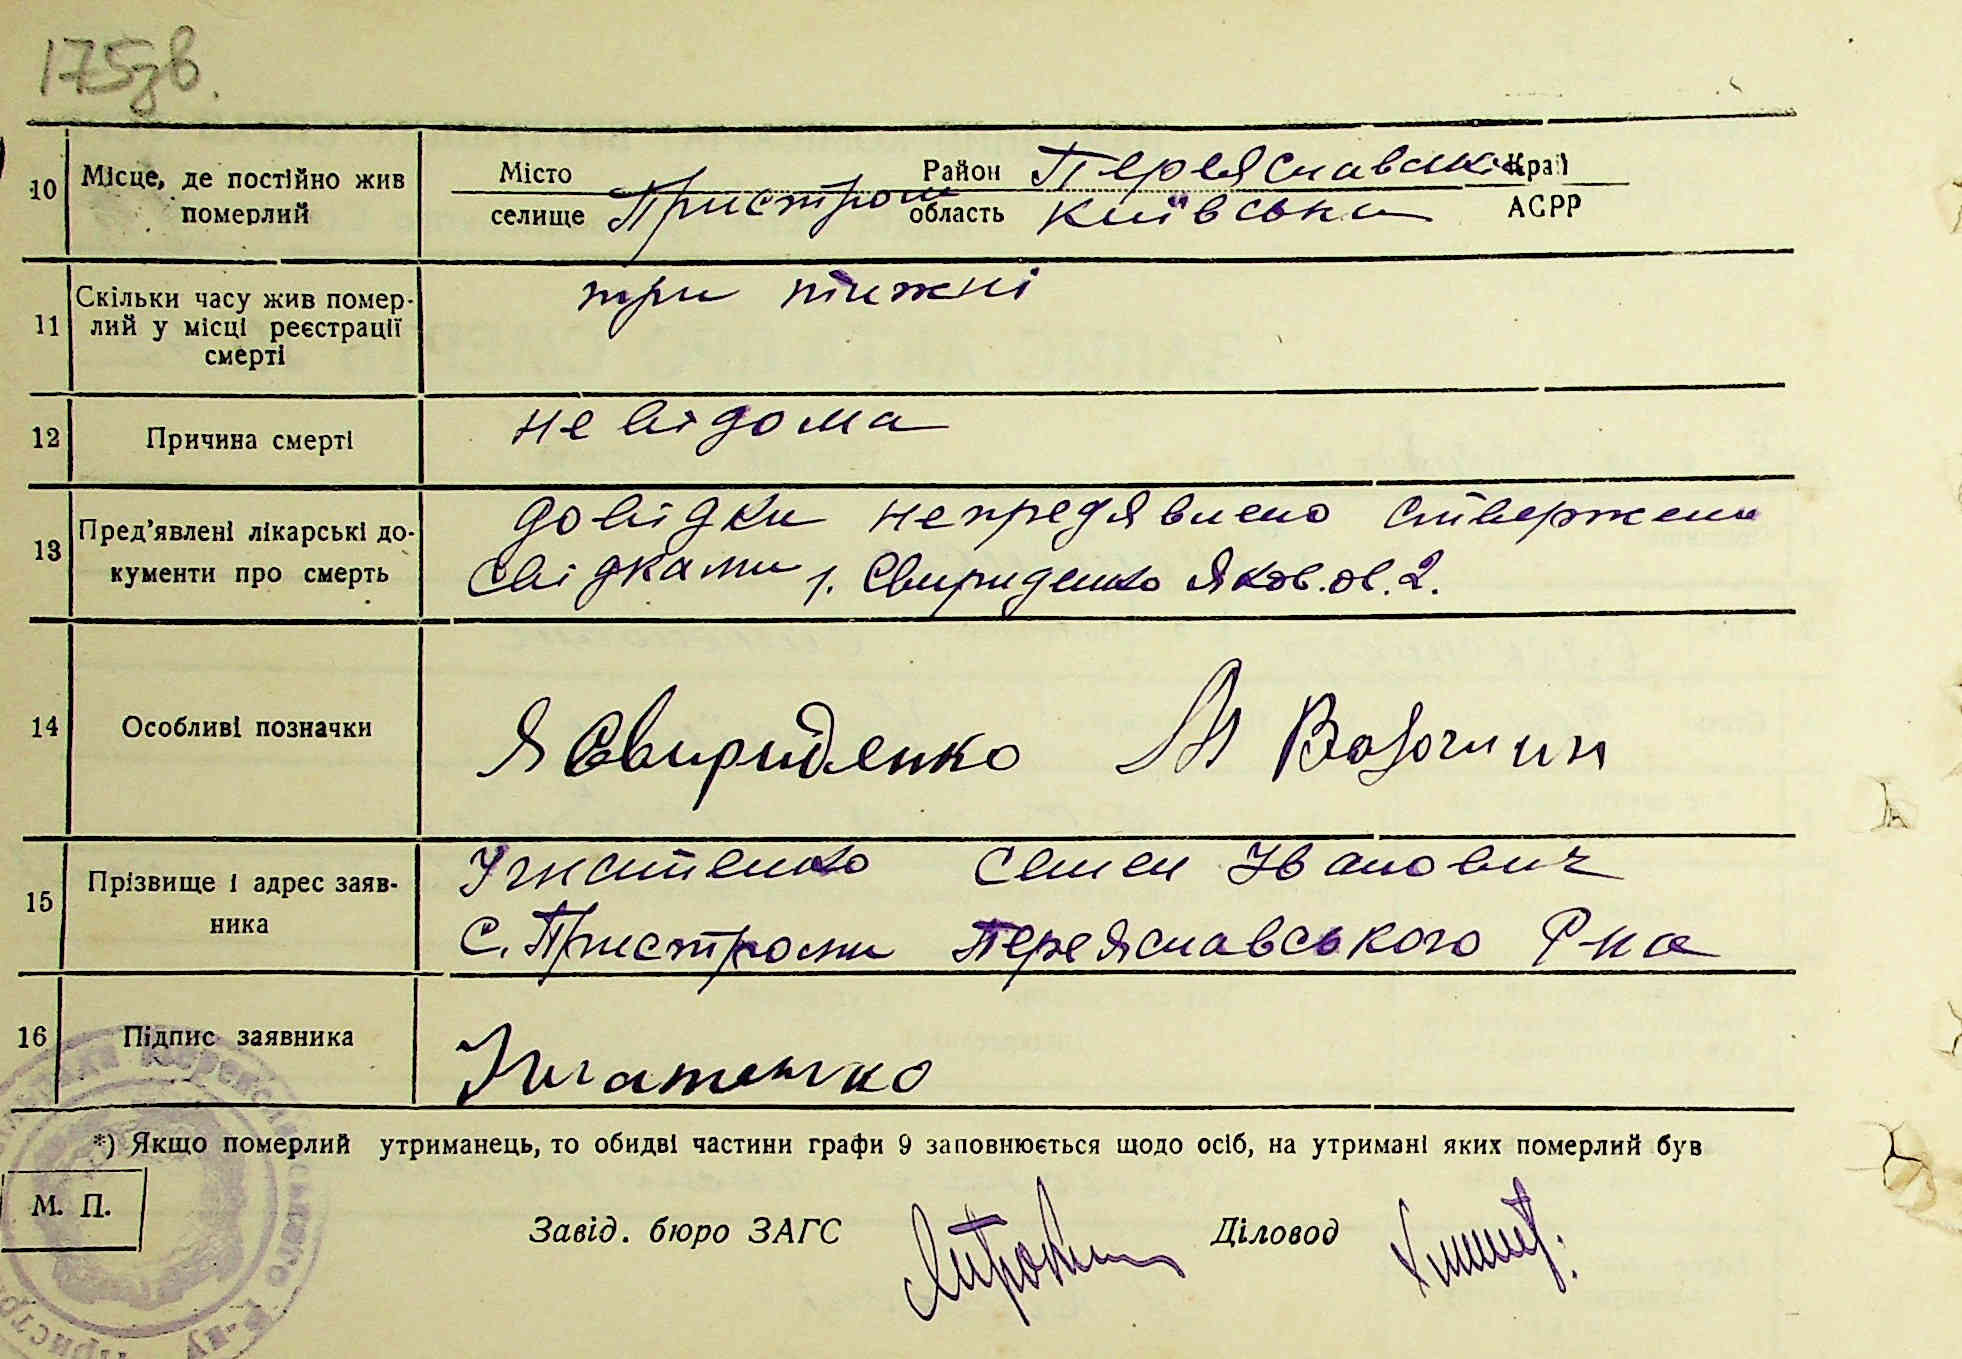 175зв.
10 Місце, де постійно жив померлий
Місто Район Переяславськ Край
селище Пристром область Київська АСРР
11 Скільки часу жив помер-
лий у місці реєстрації
смерті
три тижні
12 Причина смерті невідома
13 Пред’явлені лікарські до-
кументи про смерть
довідки непредявлено ствержено
свідками 1. Свириденко Яков. 2.
14 Особливі позначки Я Свириденко М
15 Прізвище і адрес заяв-
ника
Гнатенко Семен Іванович
с. Пристроми Переяславського Р-на
16 Підпис заявника Игнатенко
*) Якщо померлий утриманець, то обидві частини графи 9 заповнюється щодо осіб, на утримані яких померлий був
М. П.
Завід. бюро ЗАГС Діловод